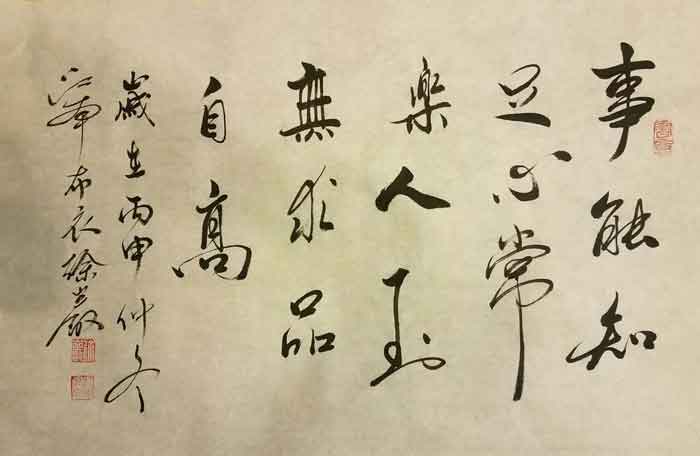 事能知
足心常
樂人到
無求品
自高
歲在丙申仲冬
布衣徐